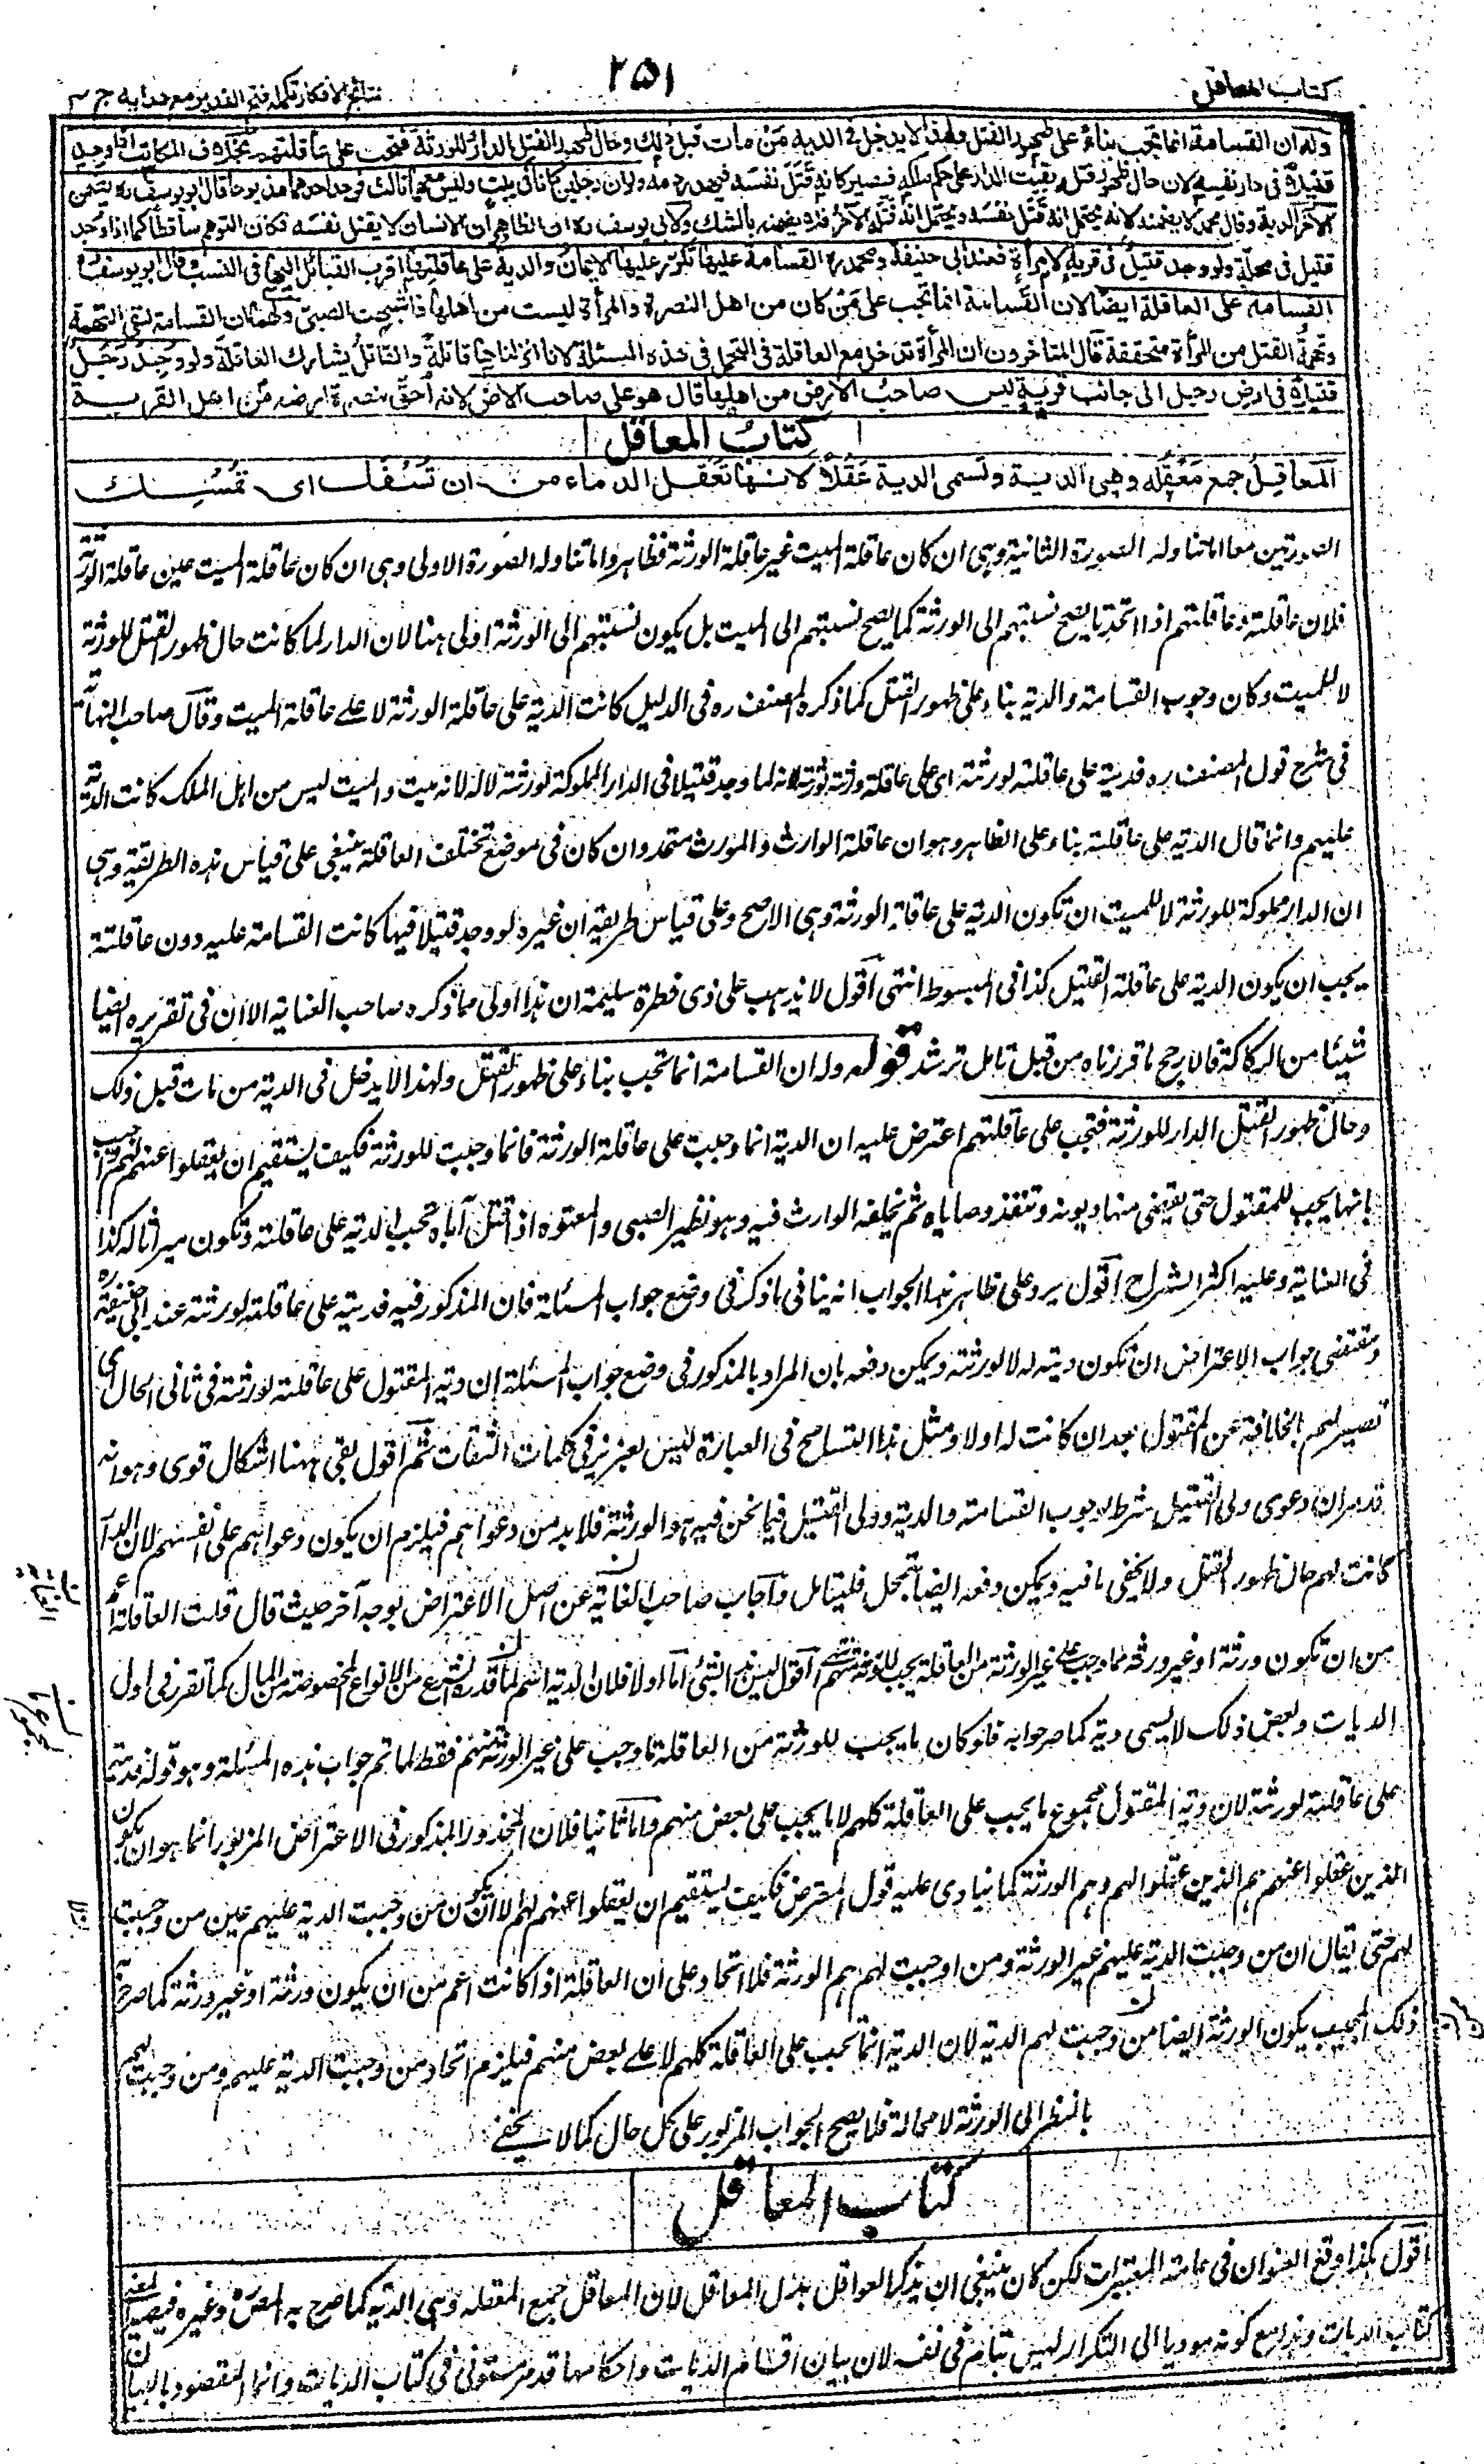 كتاب المعاقل
٢٥١
نتائج الافكار تكملة فتح القدير مع هداية ج ٤
وله ان القسامة انما تجب بناء على ظهور القتل ولهذا لا يدخل فى الدية من مات قبل ذلك وحال ظهور القتل الدار للورثة فتجب على عاقلتهم بخلاف المكاتب اذا وجد
قتيلا فى دار نفسه لان حال ظهور قتله بقيت الدار على حكم ملكه فيصير كانه قتل نفسه فيهدر دمه ولو ان رجلين كانا فى بيت وليس معهما ثالث فوجد احدهما مذبوحا قال ابو يوسف ره يضمن
الآخر الدية وقال محمد لا يضمنه لانه يحتمل انه قتل نفسه ويحتمل انه قتله الآخر فلا يضمنه بالشك ولابى يوسف ره ان الظاهر ان الانسان لا يقتل نفسه فكان التوهم ساقطا كما اذا وجد
قتيل فى محلة ولو وجد قتيل فى قرية لامرأة فعند ابى حنيفة ومحمد ره القسامة عليها تكرر عليها الايمان والدية على عاقلتها اقرب القبائل اليها فى النسب وقال ابو يوسف ره
القسامة على العاقلة ايضا لان القسامة انما تجب على من كان من اهل النصرة والمرأة ليست من اهلها فاشبهت الصبى ولهما ان القسامة لنفى التهمة
وتهمة القتل من المرأة متحققة قال المتاخرون ان المرأة تدخل مع العاقلة فى التحمل فى هذه المسئلة لانا انزلناها قاتلة والقاتل يشارك العاقلة ولو وجد رجل
قتيلا فى ارض رجل الى جانب قرية ليس صاحب الارض من اهلها قال هو على صاحب الارض لانه احق بنصرة ارضه من اهل القرية
كتاب المعاقل
المعاقل جمع معقلة وهى الدية وتسمى الدية عقلا لانها تعقل الدماء من ان تسفك اى تمسك
الصورتين معا اما تناوله الصورة الثانية وهى ان كان عاقلة الميت غير عاقلة الورثة فظاهر واما تناوله الصورة الاولى وهى ان كان عاقلة الميت عين عاقلة الورثة
فلان عاقلته وعاقلتهم اذا اتحدتا يصح نسبتهم الى الورثة كما يصح نسبتهم الى الميت بل يكون نسبتهم الى الورثة اولى هنا لان الدار لما كانت حال ظهور القتل للورثة
لا للميت وكان وجوب القسامة والدية بناء على ظهور القتل كما ذكره المصنف ره فى الدليل كانت الدية على عاقلة الورثة لا على عاقلة الميت وقال صاحب النهاية
فى شرح قول المصنف ره فديته على عاقلته لورثته اى على عاقلة ورثته لورثته لانه لما وجد قتيلا فى الدار المملوكة لورثته لا له لانه ميت والميت ليس من اهل الملك كانت الدية
عليهم وانما قال الدية على عاقلته بناء على الظاهر وهو ان عاقلة الوارث والمورث متحد وان كان فى موضع تختلف العاقلة ينبغى على قياس هذه الطريقة وهى
ان الدار مملوكة للورثة لا للميت ان تكون الدية على عاقلة الورثة وهى الاصح وعلى قياس طريقة ان غيره لو وجد قتيلا فيها كانت القسامة عليه دون عاقلته
يجب ان يكون الدية على عاقلة القتيل كذا فى المبسوط انتهى اقول لا يذهب على ذى فطرة سليمة ان هذا اولى مما ذكره صاحب العناية الا ان فى تقريره ايضا
شيئا من الركاكة فالارجح ما قررناه من قبل تامل ترشد قوله وله ان القسامة انما تجب بناء على ظهور القتل ولهذا لا يدخل فى الدية من مات قبل ذلك
وحال ظهور القتل الدار للورثة فتجب على عاقلتهم اعترض عليه ان الدية انما وجبت على عاقلة الورثة فانما وجبت للورثة فكيف يستقيم ان يعقلوا عنهم لهم واجيب
بانها يجب للمقتول حتى يقضى منها ديونه وتنفذ وصاياه ثم يخلفه الوارث فيه وهو نظير الصبى والمعتوه اذا قتل اباه تجب الدية على عاقلته وتكون ميراثا له كذا
فى العناية وعليه اكثر الشراح اقول يرد على ظاهر هذا الجواب انه ينافى ما ذكر فى وضع جواب المسئلة فان المذكور فيه فديته على عاقلته لورثته عند ابى حنيفة ره
ومقتضى جواب الاعتراض ان تكون ديته له لا لورثته ويمكن دفعه بان المراد بالمذكور فى وضع جواب المسئلة ان دية المقتول على عاقلته لورثته فى ثانى الحال اى
تصير لهم بالخلافة عن المقتول بعد ان كانت له اولا ومثل هذا التسامح فى العبارة ليس بعزيز فى كلمات الثقات ثم اقول بقى ههنا اشكال قوى وهو انه
قد مر ان دعوى ولى القتيل شرط لوجوب القسامة والدية وولى القتيل فيما نحن فيه هو الورثة فلا بد من دعواهم فيلزم ان يكون دعواهم على انفسهم لان الدار
كانت لهم حال ظهور القتل ولا يخفى ما فيه ويمكن دفعه ايضا بتمحل فليتامل واجاب صاحب الغاية عن اصل الاعتراض بوجه آخر حيث قال قلت العاقلة اعم
من ان تكون ورثة او غير ورثة فما وجب على غير الورثة من العاقلة يجب للورثة منهم اقول ليس هذا بشئ اما اولا فلان الدية اسم لما قدره الشرع من الانواع المخصوصة من المال كما تقرر فى اول
الديات وبعض ذلك لا يسمى دية كما صرحوا به فلو كان ما يجب للورثة من العاقلة ما وجب على غير الورثة منهم فقط لما تم جواب هذه المسئلة وهو قوله فديته
على عاقلته لورثته لان دية المقتول مجموع ما يجب على العاقلة كلهم لا ما يجب على بعض منهم واما ثانيا فلان المحذور المذكور فى الاعتراض المزبور انما هو ان يكون
الذين عقلوا عنهم هم الذين عقلوا لهم وهم الورثة كما ينادى عليه قول المعترض فكيف يستقيم ان يعقلوا عنهم لهم لا ان يكون من وجبت الدية عليهم عين من وجبت
لهم حتى يقال ان من وجبت الدية عليهم غير الورثة ومن اوجبت لهم هم الورثة فلا اتحاد على ان العاقلة اذا كانت اعم من ان يكون ورثة او غير ورثة كما صرح به
ذلك المجيب يكون الورثة ايضا من وجبت لهم الدية لان الدية انما تجب على العاقلة كلهم لا على بعض منهم فيلزم اتحاد من وجبت الدية عليهم ومن وجبت لهم
بالنظر الى الورثة لا محالة فلا يصح الجواب المزبور على كل حال كما لا يخفى
كتاب المعاقل
اقول كذا وقع العنوان فى عامة المعتبرات لكن كان ينبغى ان يذكر العواقل بدل المعاقل لان المعاقل جمع المعقلة وهى الدية كما صرح به المص ره وغيره فيصير المعنى
كتاب الديات وهذا مع كونه موديا الى التكرار ليس بتام فى نفسه لان بيان اقسام الديات واحكامها قد مر مستوفى فى كتاب الديات وانما المقصود بالبيان